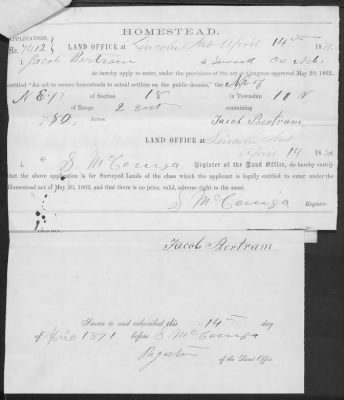 HOMESTEAD.
APPLICATION,
No. 7412 LAND OFFICE at Lincoln Neb April 14th 1871.
I, Jacob Bertram of Seward Co Neb.
do hereby apply to enter, under the provisions of the act of Congress approved May 20, 1862,
entitled "An act to secure homesteads to actual settlers on the public domain," the
N E ¼ of Section 18 in Township 11 N
of Range 2 east containing
80 Acres
Jacob Bertram.
LAND OFFICE at Lincoln Neb
April 14 1871
I, S McConiga Register of the Land Office, do hereby certify
that the above application is for Surveyed Lands of the class which the applicant is legally entitled to enter under the
Homestead act of May 20, 1862, and that there is no prior, valid, adverse right to the same.
S McConiga Register.
Jacob Bertram
Sworn to and subscribed this 14th day
of April 1871 before S McConiga
Register of the Land Office.